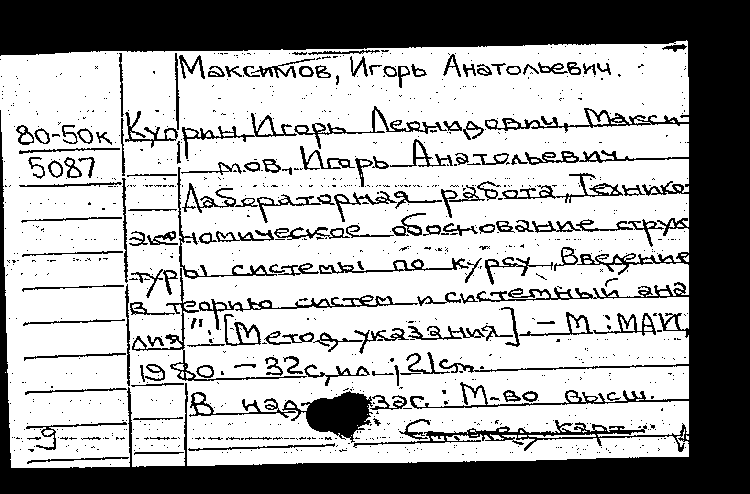 Максимов, Игорь Анатольевич.
80-50к
5087
Куприн, Игорь Леонидович, Макси-
мов, Игорь Анатольевич.
Лабораторная работа „Технико-
экономическое обоснование струк
туры системы по курсу „Введение
в теорию систем и системный ана
лиз": [Метод. указания]. – М.: МАИ,
1980. – 32с., ил.; 21см.
В над зас.: М-во высш.
См. след. карт.
9